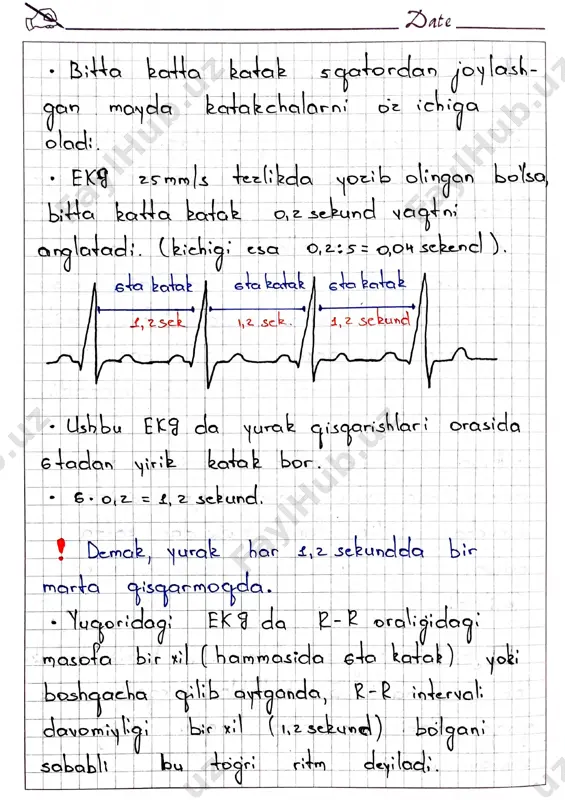 Date
• Bitta katta katak 5 qatordan joylash-
gan mayda katakchalarni o'z ichiga
oladi.
• EKg 25mm/s tezlikda yozib olingan bo'lsa,
bitta katta katak 0,2 sekund vaqtni
anglatadi. (kichigi esa 0,2:5=0,04 sekend).
6ta katak 6ta katak 6ta katak
1,2 sek 1,2 sek. 1,2 sekund
• Ushbu EKg da yurak qisqarishlari orasida
6tadan yirik katak bor.
• 6 · 0,2 = 1,2 sekund.
! Demak, yurak har 1,2 sekundda bir
marta qisqarmoqda.
• Yuqoridagi EKg da R-R oraligidagi
masofa bir xil (hammasida 6ta katak) yoki
boshqacha qilib aytganda, R-R intervali
davomiyligi bir xil (1,2 sekund) bo'lgani
sababli bu to'g'ri ritm deyiladi.
FaylHub.uz
FaylHub.uz
FaylHub.uz
FaylHub.uz